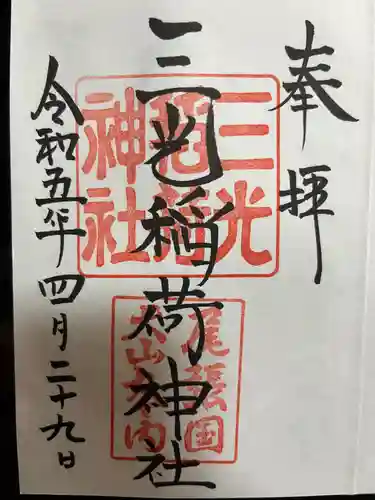 奉拝
三光稲荷神社
三光
稲荷
神社
尾張国
犬山城内
令和五年四月二十九日